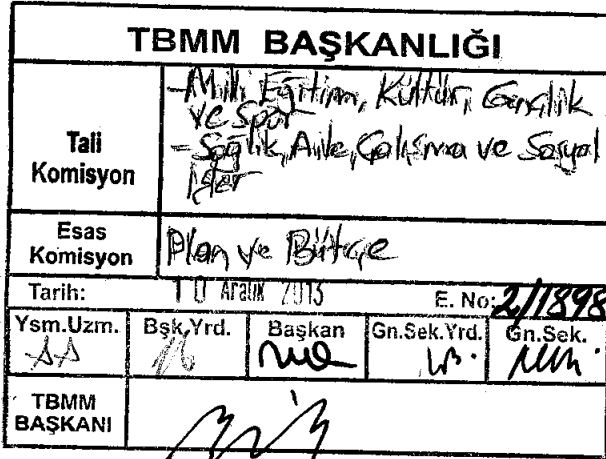 TBMM BAŞKANLIĞI
Tali
Komisyon
-Milli Eğitim, Kültür, Gençlik
ve Spor
-Sağlık, Aile, Çalışma ve Sosyal
İşler
Esas
Komisyon
Plan ve Bütçe
Tarih: 10 Aralık 2013 E. No: 2/1898
Ysm.Uzm. Bşk.Yrd. Başkan Gn.Sek.Yrd. Gn.Sek.
TBMM
BAŞKANI